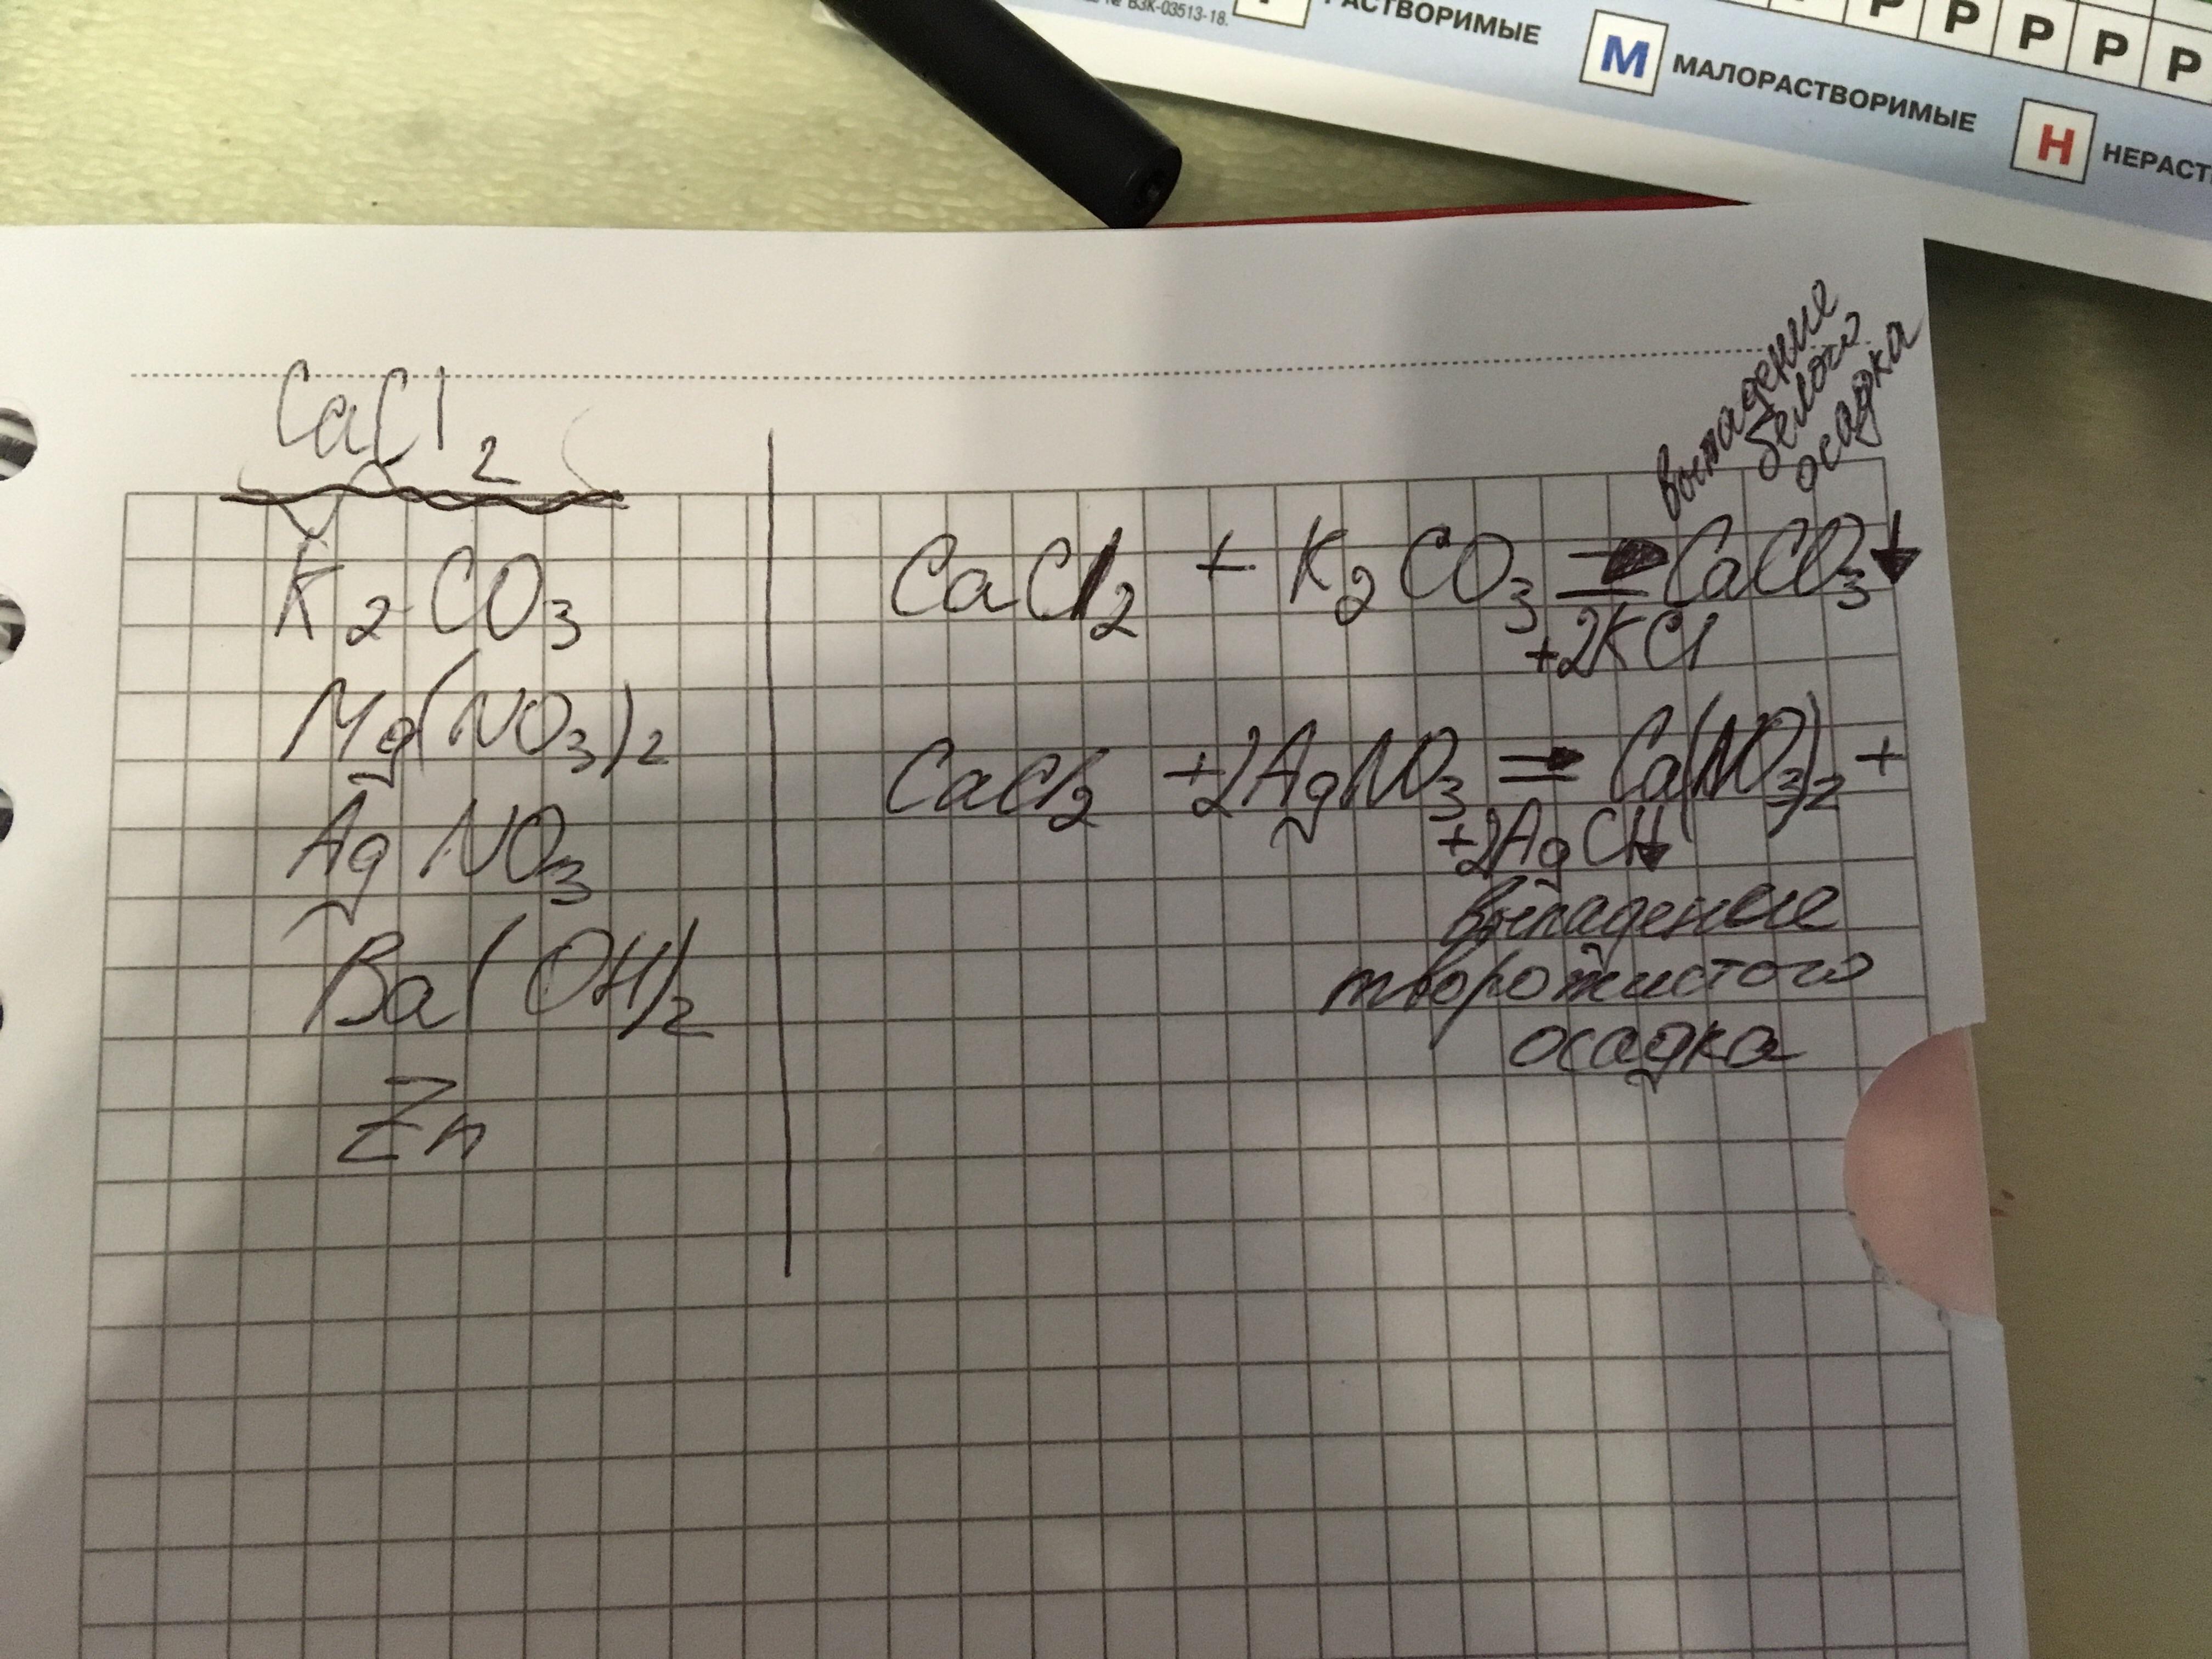 № ВЗК-03513-18.
РАСТВОРИМЫЕ
М МАЛОРАСТВОРИМЫЕ
Н НЕРАСТ
Р Р Р Р Р
CaCl2
K2CO3
Mg(NO3)2
AgNO3
Ba(OH)2
Zn
выпадение
белого
осадка
CaCl2 + K2CO3 = CaCO3↓
+2KCl
CaCl2 +2AgNO3 = Ca(NO3)2 +
+2AgCl↓
выпадение
творожистого
осадка